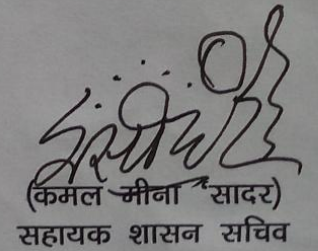 (कमल मीना सादर)
सहायक शासन सचिव